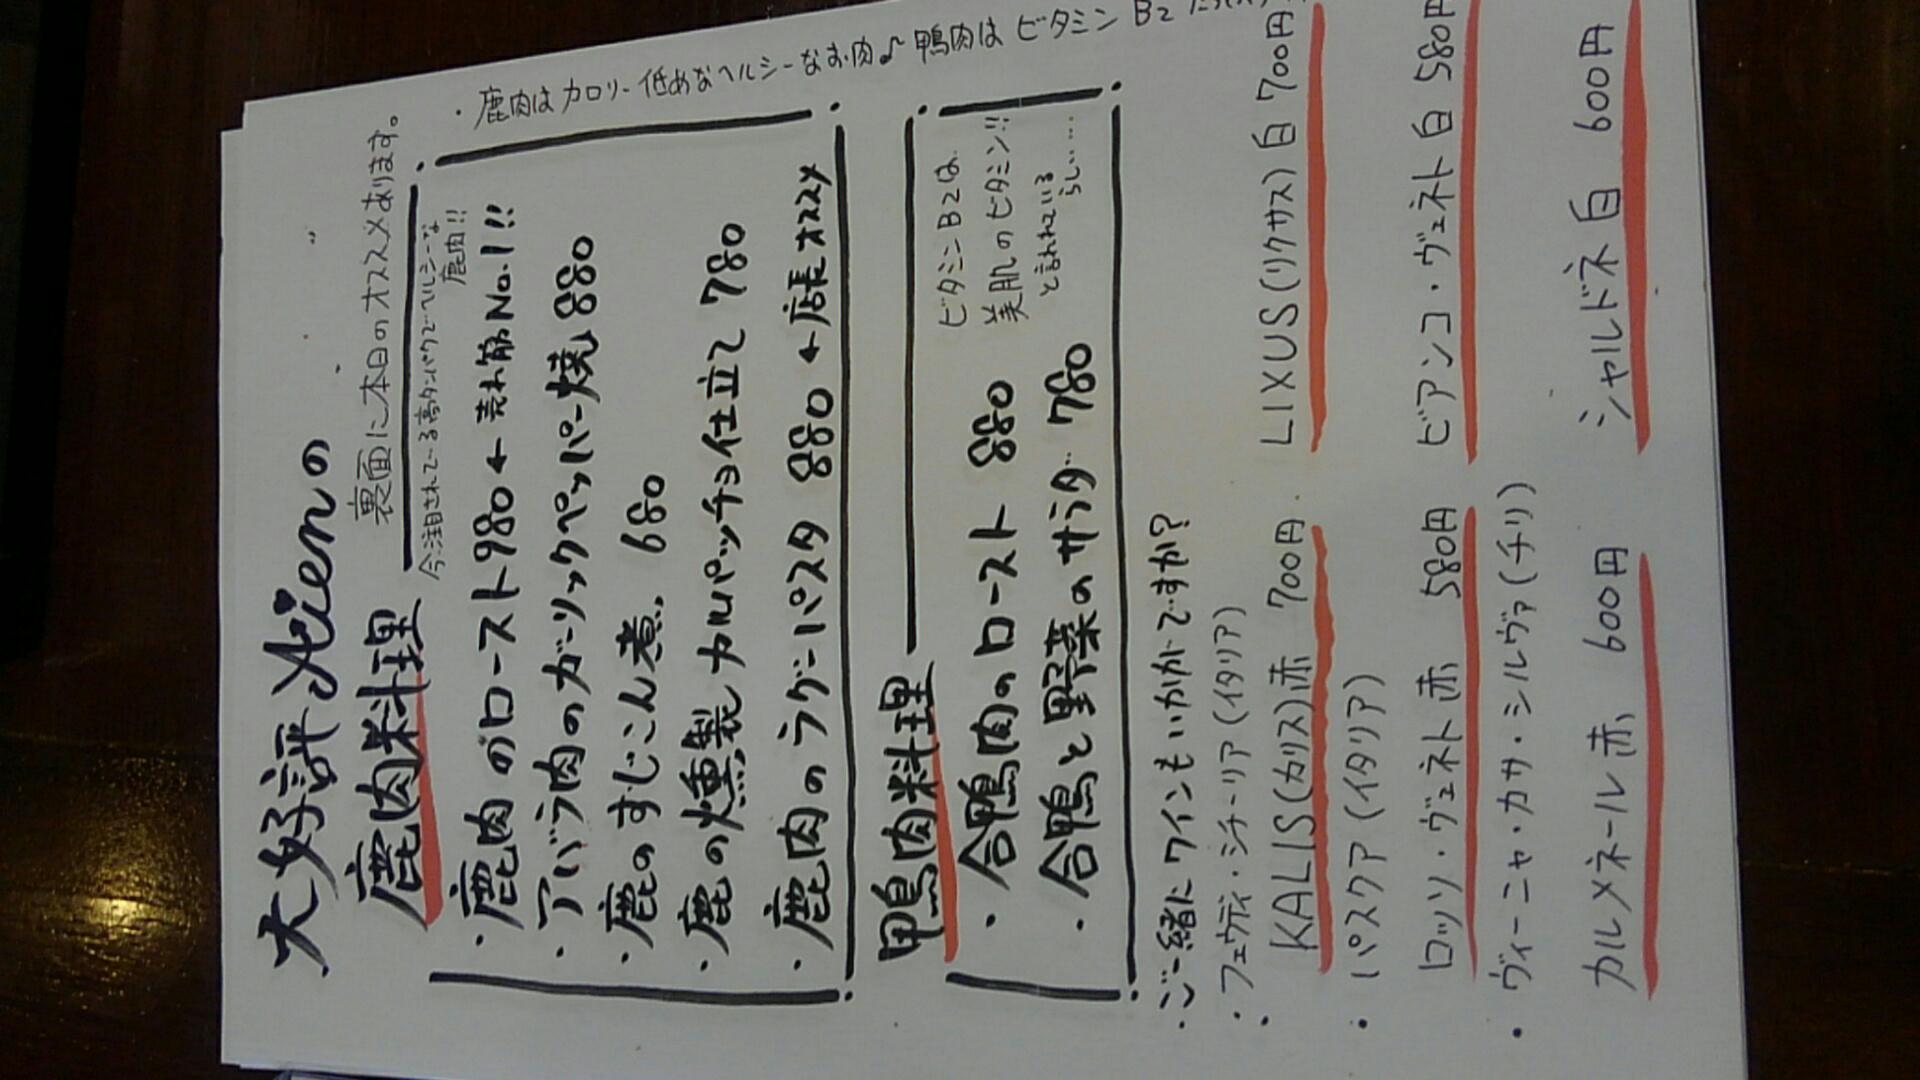 大好評Aienの
裏面に本日のオススメあります。
鹿肉料理
今注目されてる高タンパクでヘルシーな
鹿肉!!
・鹿肉は カロリー低めなヘルシーなお肉♪ 鴨肉は ビタミン B2
・鹿肉のロースト980 ← 売れ筋No.1!!
・アバラ肉のガーリックペッパー焼 880
・鹿のすじこん煮 680
・鹿の燻製 カルパッチョ仕立て 780
・鹿肉のラグーパスタ 880 ← 店長オススメ
鴨肉料理
ビタミンB2は
美肌のビタミン!!
と言われている
らしい……
・合鴨肉のロースト 880
・合鴨と野菜のサラダ 780
・ご一緒にワインもいかがですか?
・フェウディ・シチーリア (イタリア)
・KALIS(カリス)赤 700円
LIXUS(リクサス)白 700円
・パスクア (イタリア)
ロッソ・ヴェネト 赤 580円
ビアンコ・ヴェネト 白 580円
・ヴィーニャ・カサ・シルヴァ (チリ)
カルメネール 赤 600円
シャルドネ 白 600円